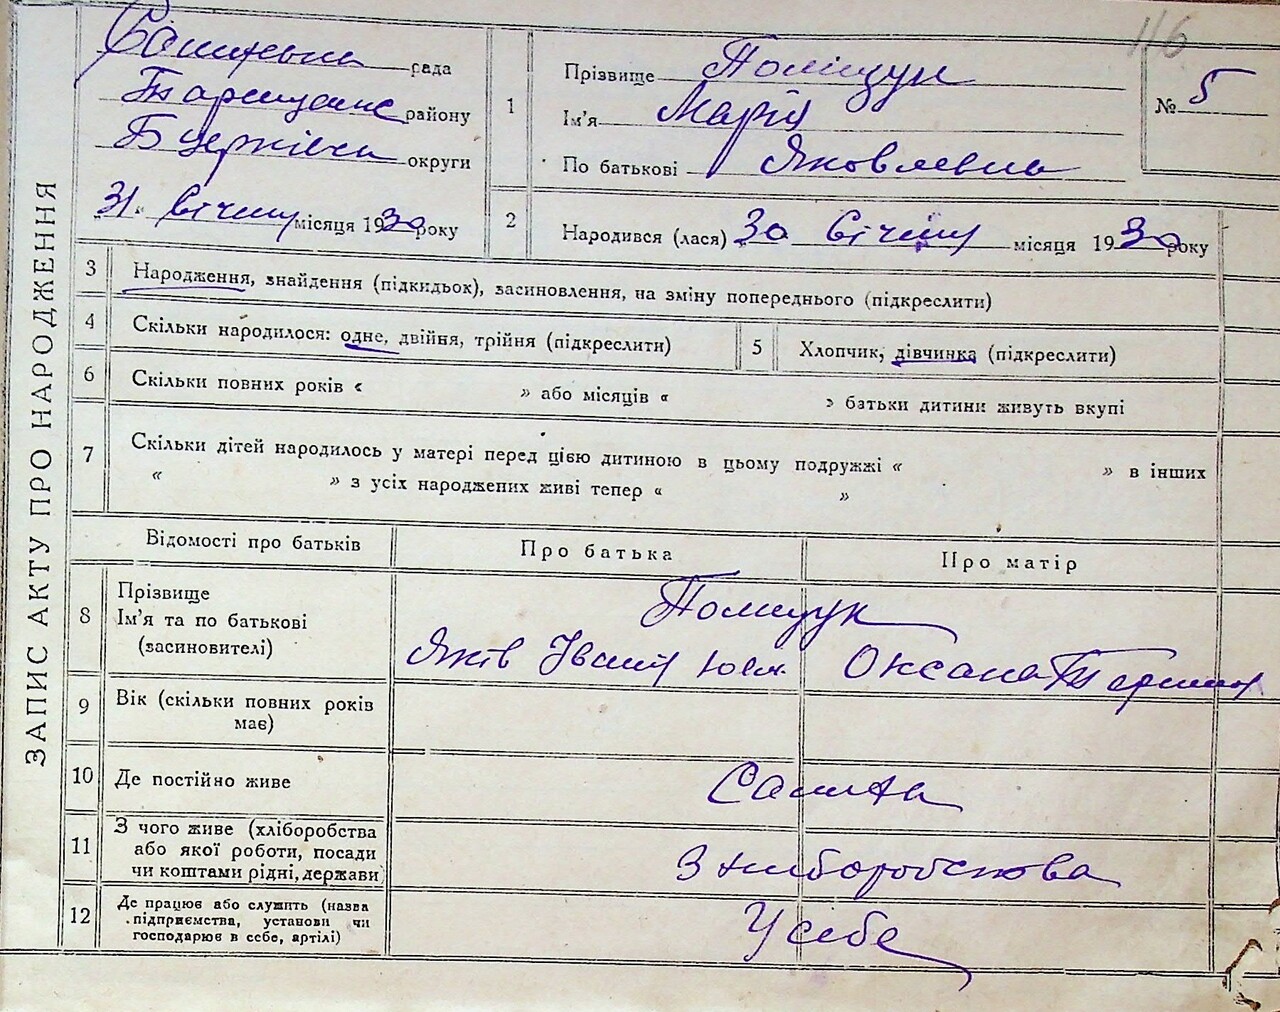 116
рада
Таращанс району
Б церківсн округи
31 " Січня місяця 1930 року
ЗАПИС АКТУ ПРО НАРОДЖЕННЯ
1
Прізвище Поліщук
Ім'я Марія
По батькові Яковлевна
№ 5
2
Народився (лася) 30 Січня місяця 1930 року
3 Народження, знайдення (підкидьок), засиновлення, на зміну попереднього (підкреслити)
4 Скільки народилося: одне, двійня, трійня (підкреслити)
5 Хлопчик, дівчинка (підкреслити)
6 Скільки повних років « » або місяців « » батьки дитини живуть вкупі
7 Скільки дітей народилось у матері перед цією дитиною в цьому подружжі « » в інших
« » з усіх народжених живі тепер « »
Відомості про батьків
Про батька
Про матір
8
Прізвище
Ім'я та по батькові
(засиновителі)
Поліщук
Яків Іванів
Оксана
9 Вік (скільки повних років
має)
10 Де постійно живе
11 З чого живе (хліборобства
або якої роботи, посади
чи коштами рідні, держави)
З хліборобства
12 Де працює або служить (назва
підприємства, установи чи
господарює в себе, артілі)
У себе